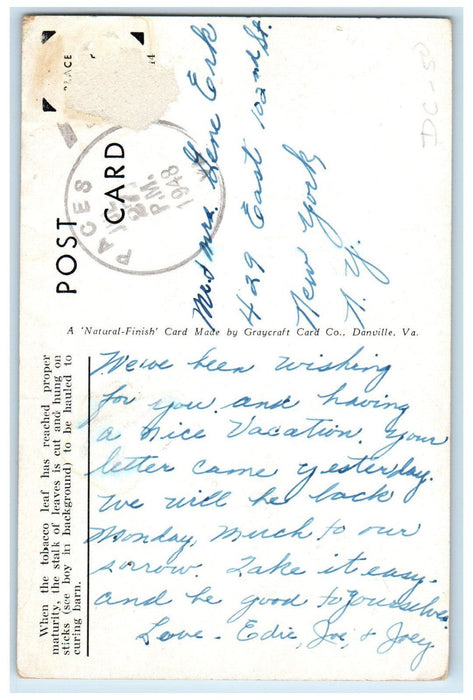 PLACE
POST CARD
PACES
P.M.
1948
Mr. & Mrs. Gene Erk
429 East 102nd St.
New York
N. Y.
DC-50
A 'Natural-Finish' Card Made by Graycraft Card Co., Danville, Va.
When the tobacco leaf has reached proper
maturity, the stalk of leaves is cut and hung on
sticks (see boy in background) to be hauled to
curing barn.
We've been wishing
for you and having
a nice Vacation. Your
letter came yesterday.
We will be back
Monday, much to our
sorrow. Take it easy-
and be good to yourselves
Love - Edie, Joe, & Joey